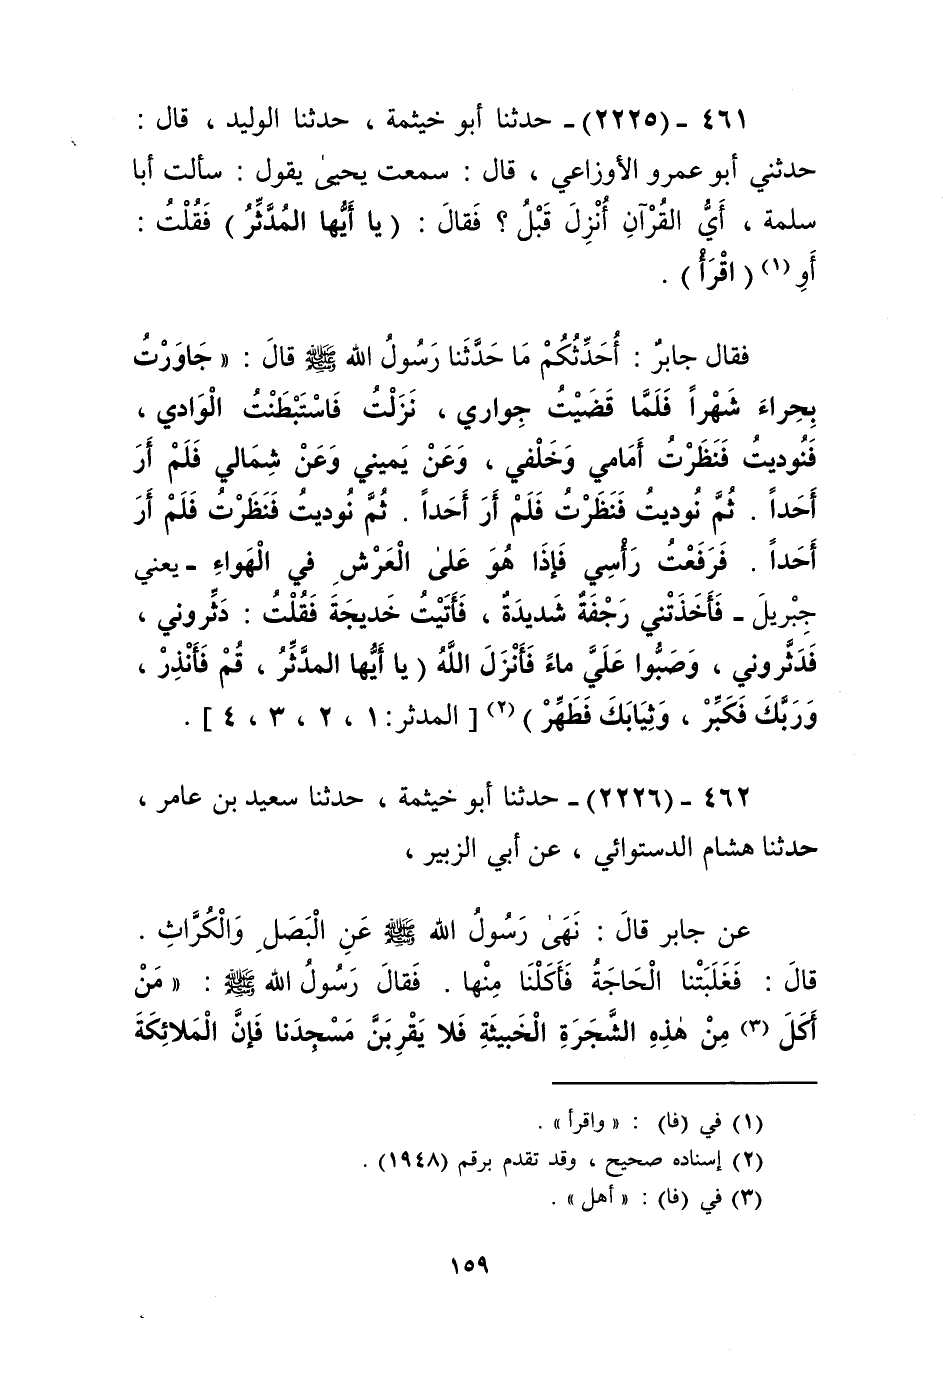 ٤٦١ - (٢٢٢٥) - حدثنا أبو خيثمة ، حدثنا الوليد ، قال :
حدثني أبو عمرو الأوزاعي ، قال : سمعت يحيىٰ يقول : سألت أبا
سلمة ، أَيُّ القُرْآنِ أُنْزِلَ قَبْلُ ؟ فَقالَ : ( يا أَيُّها المُدَّثِّرُ ) فَقُلْتُ :
أَوِ (١) ( اقْرَأْ ) .
فقال جابرٌ : أُحَدِّثُكُمْ مَا حَدَّثَنا رَسُولُ الله ﷺ قالَ : « جَاوَرْتُ
بِحِراءَ شَهْراً فَلَمَّا قَضَيْتُ جِواري ، نَزَلْتُ فَاسْتَبْطَنْتُ الْوَادي ،
فَنُوديتُ فَنَظَرْتُ أَمَامي وَخَلْفي ، وَعَنْ يَميني وَعَنْ شِمَالي فَلَمْ أَرَ
أَحَداً . ثُمَّ نُوديتُ فَنَظَرْتُ فَلَمْ أَرَ أَحَداً . ثُمَّ نُوديتُ فَنَظَرْتُ فَلَمْ أَرَ
أَحَداً . فَرَفَعْتُ رَأْسِي فَإِذَا هُوَ عَلىٰ الْعَرْشِ في الْهَواءِ - يعني
جِبْريلَ - فَأَخَذَتْني رَجْفَةٌ شَديدَةٌ ، فَأَتَيْتُ خَديجَةَ فَقُلْتُ : دَثِّروني ،
فَدَثَّروني ، وَصَبُّوا عَلَيَّ ماءً فَأَنْزَلَ اللَّهُ ( يا أَيُّها المدَّثِّرُ ، قُمْ فَأَنْذِرْ ،
وَرَبَّكَ فَكَبِّرْ ، وَثِيَابَكَ فَطَهِّرْ ) (٢) [ المدثر : ١ ، ٢ ، ٣ ، ٤ ] .
٤٦٢ - (٢٢٢٦) - حدثنا أبو خيثمة ، حدثنا سعيد بن عامر ،
حدثنا هشام الدستوائي ، عن أبي الزبير ،
عن جابر قالَ : نَهَىٰ رَسُولُ الله ﷺ عَنِ الْبَصَلِ وَالْكُرَّاثِ .
قالَ : فَغَلَبَتْنا الْحَاجَةُ فَأَكَلْنَا مِنْها . فَقالَ رَسُولُ الله ﷺ : « مَنْ
أَكَلَ (٣) مِنْ هٰذِهِ الشَّجَرَةِ الْخَبيثَةِ فَلا يَقْرِبَنَّ مَسْجِدَنا فَإِنَّ الْمَلائِكَةَ
(١) في (فا) : « واقرأ » .
(٢) إسناده صحيح ، وقد تقدم برقم (١٩٤٨) .
(٣) في (فا) : « أهل » .
١٥٩